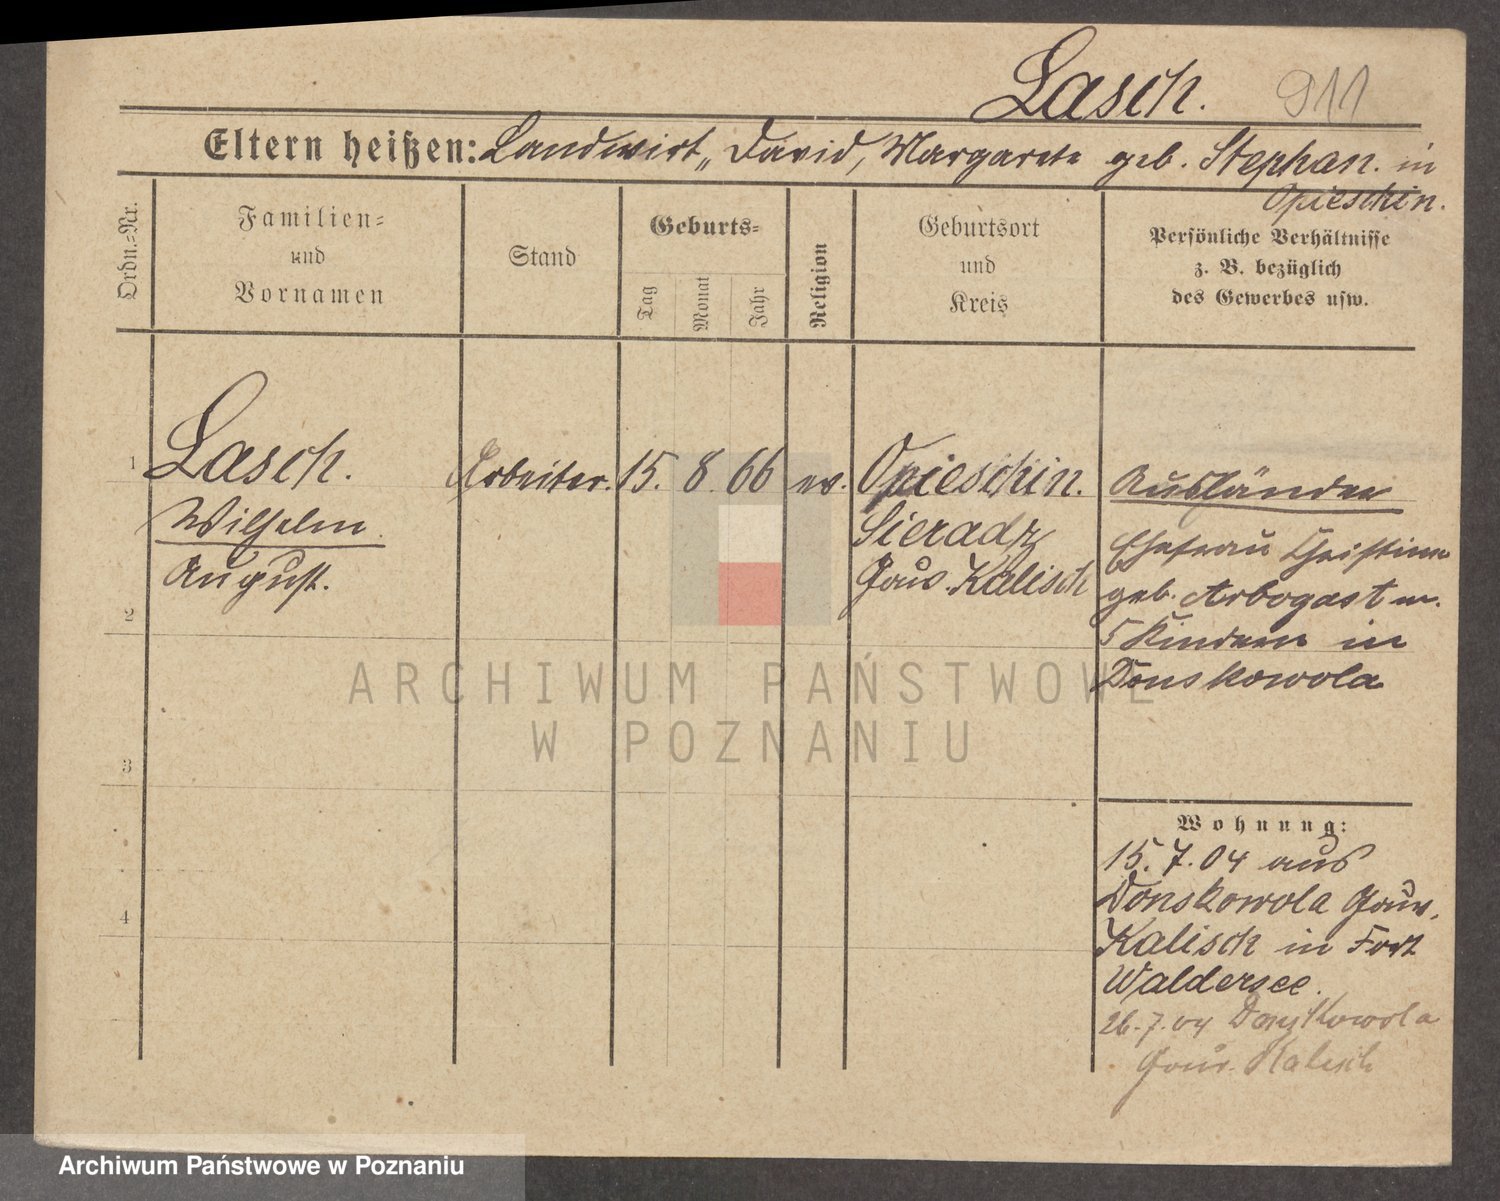 Lasch. 911
Eltern heißen: Landwirt „ David, Margarete geb. Stephan. in
Opieschin.
Ordn.=Nr.
Familien=
und
Vornamen
Stand
Geburts=
Tag
Monat
Jahr
Religion
Geburtsort
und
Kreis
Persönliche Verhältnisse
z. B. bezüglich
des Gewerbes usw.
1
Lasch.
Wilhelm
August.
Arbeiter.
15. 8. 66
ev.
Opieschin.
Sieradz
Gouv. Kalisch
Ausländer
Ehefrau Christine
geb. Arbogast u.
5 Kindern in
Donskowola
2
3
4
Wohnung:
15. 7. 04 aus
Donskowola Gouv.
Kalisch in Fort
Waldersee.
26.7.04 Donskowola
Gouv. Kalisch
ARCHIWUM PAŃSTWOWE
W POZNANIU
Archiwum Państwowe w Poznaniu